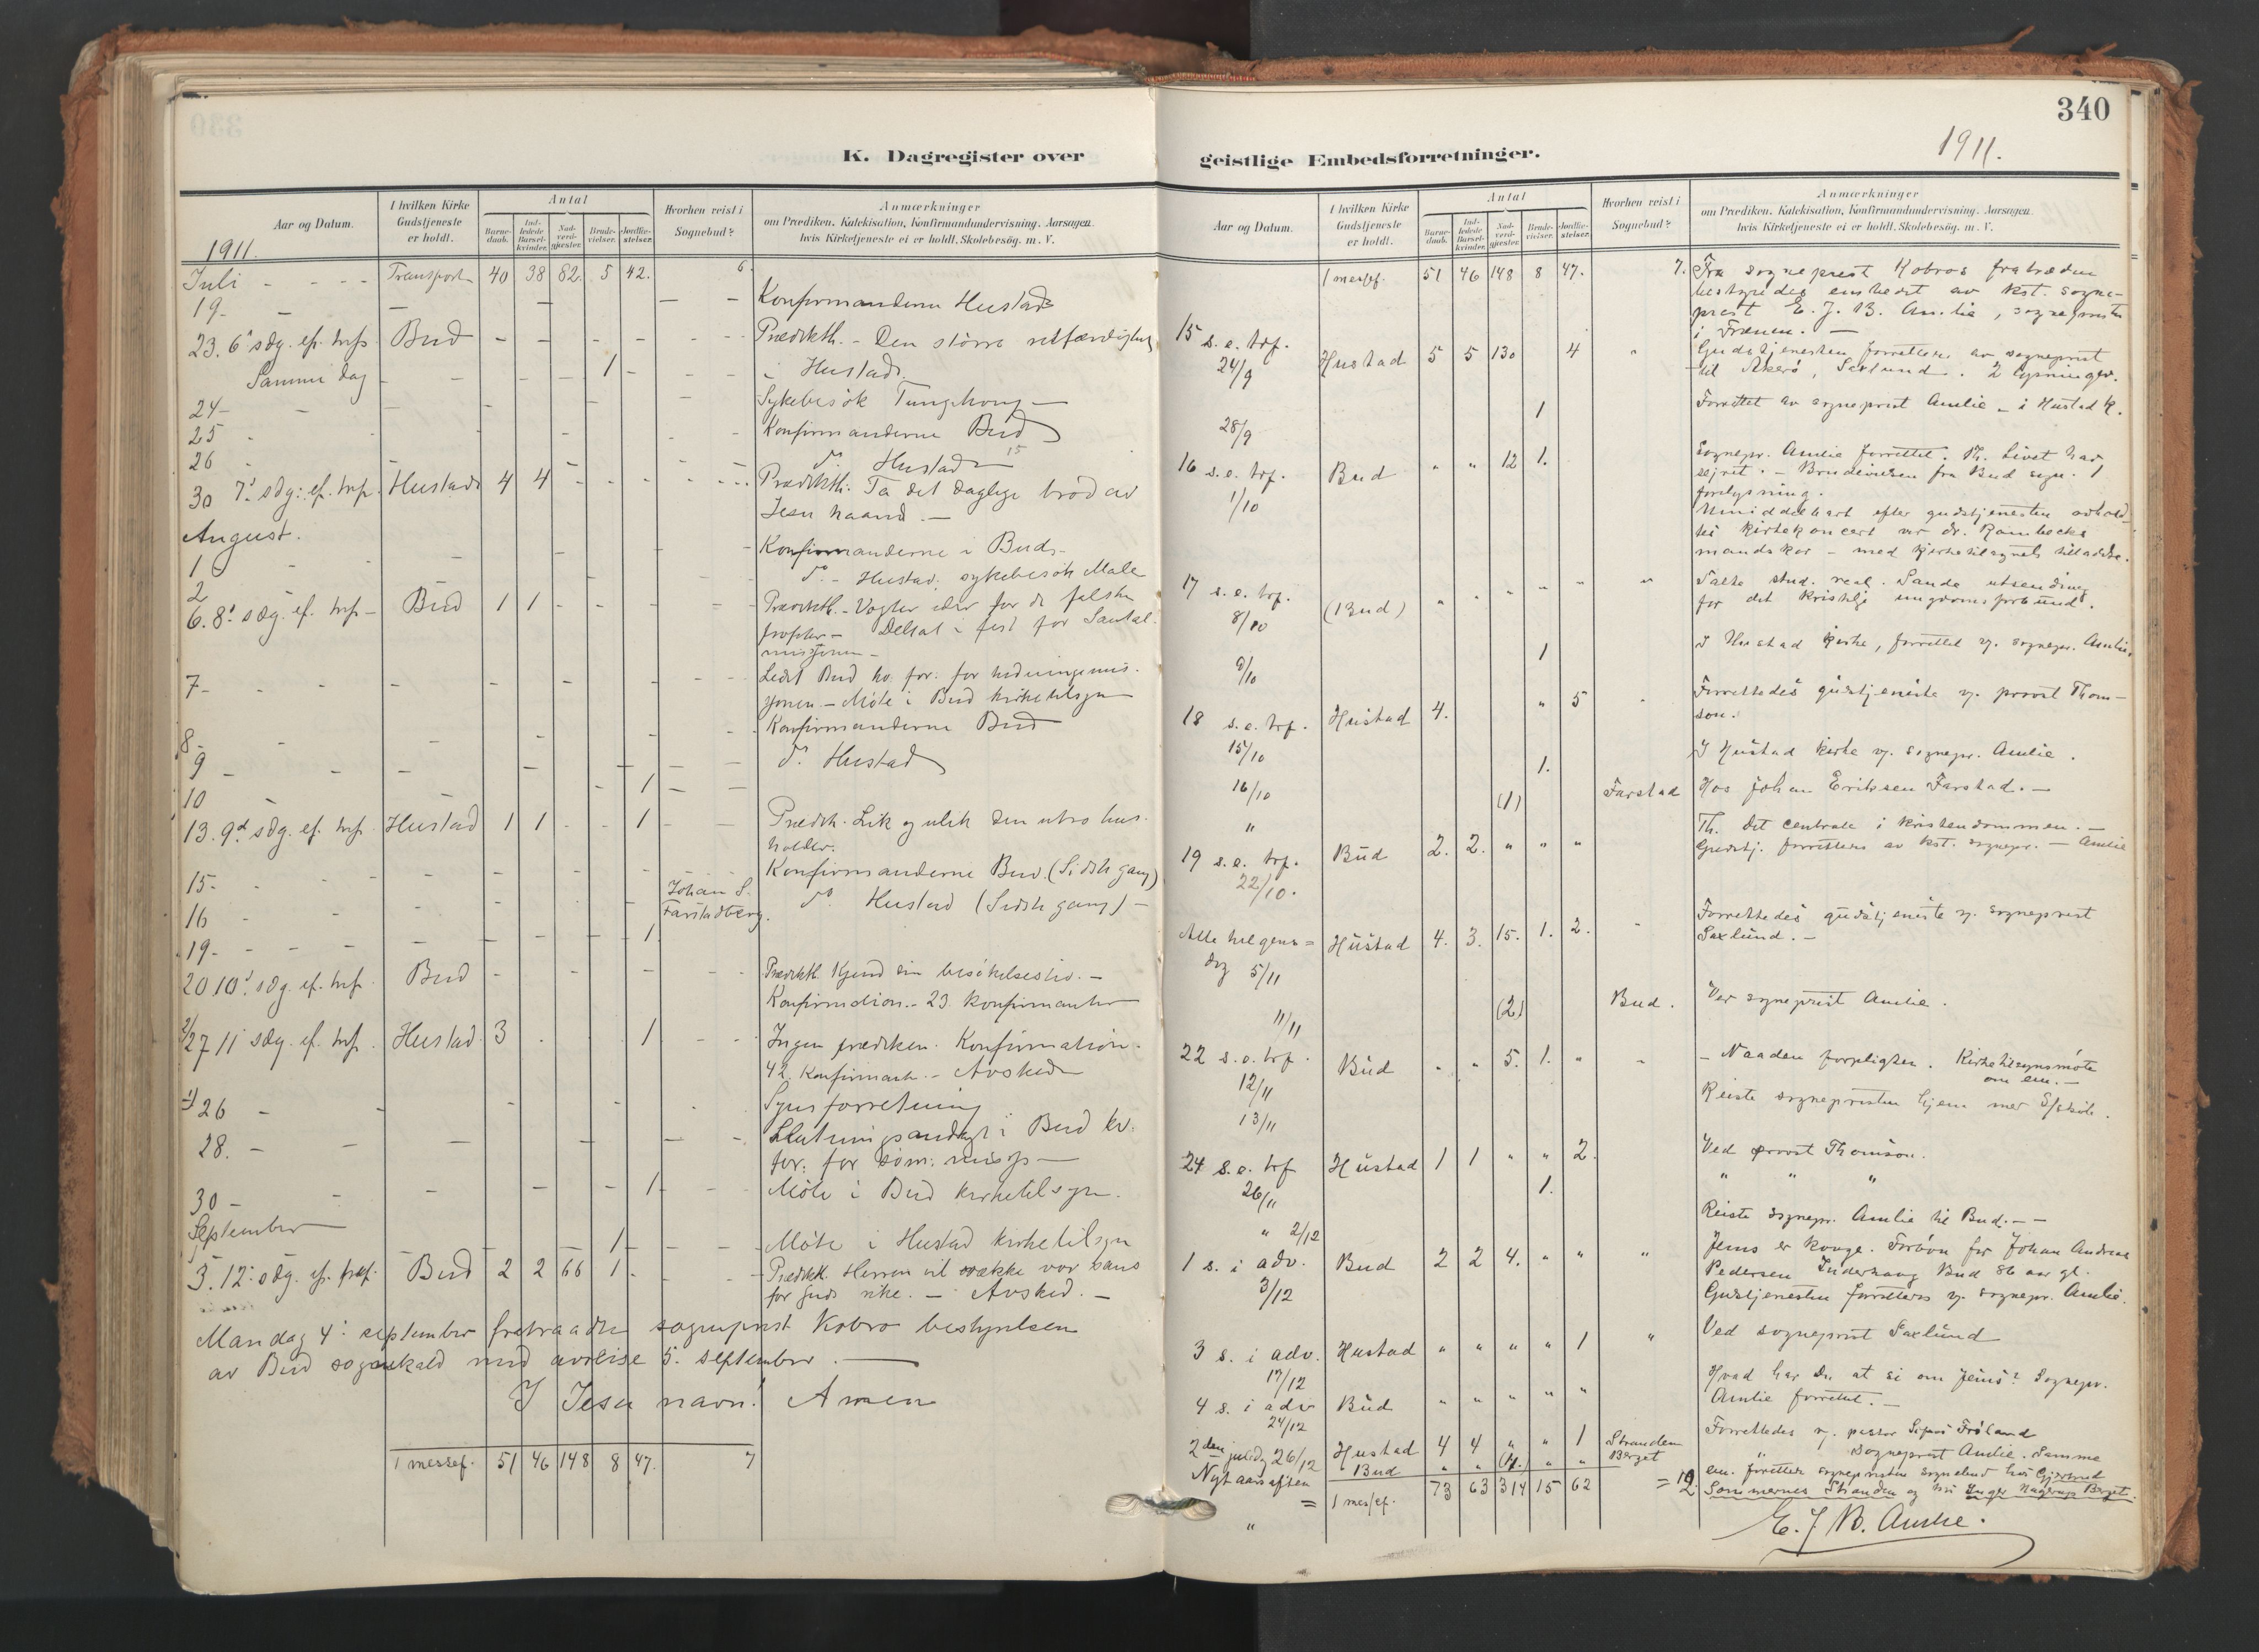 340
1911.
K. Dagregister over
geistlige Embedsforretninger.
Aar og Datum.
I hvilken Kirke Gudstjeneste er holdt.
Antal
Barne-daab.
Ind-ledede Barsel-kvinder.
Nad-verd-gjester.
Brude-vielser.
Jordfæ-stelser.
Hvorhen reist i Sognebud?
Anmærkninger
om Prædiken, Katekisation, Konfirmandundervisning. Aarsagen,
hvis Kirketjeneste ei er holdt. Skolebesög. m. V.
1911.
Juli - - - - Transport 40 38 82. 5 42. 6.
19- - Konfirmanderne Hustad
23. 6' sdg. ef. tref. Bud Prædikth. - Den større retfærdighet
Samme dag 1 i Hustad.
24- Sykebesøk Tunghaug
25 Konfirmanderne Bud
26 do Hustad 15
30 7' sdg. ef. tref. Hustad 4 4 Prædikth. Ta det daglige brød av
Jesu haand. -
August.
1 Konfirmanderne i Bud
2 do - Hustad. sykebesøk Male
6. 8' sdg. ef. tref - Bud 1 1 Prædikth. - Vogter eder for de falske
profeter - Deltat i fest for Santal-
missionen -
7- Ledet Bud kv. for. for hedningemis-
sjonen - Møte i Bud kirketilsyn
8- Konfirmanderne Bud
9 do Hustad
10 1
13. 9d sdg. ef. tref. Hustad 1 1 1 Prædik. Lik og ulik den utro hus-
holder.
15- Konfirmanderne Bud. (Sidste gang)
16 Johan S. Farstadberg. do Hustad (Sidste gang) -
19- 1
20 10' sdg. ef. tref. Bud Prædikth. Kjend din besøkelsestid. -
Konfirmation - 23 konfirmanter
2/27 11' sdg. ef. tref. Hustad. 3 1 Ingen prædiken. Konfirmation.
42 konfirmant. - Avsked
1/26 - Synsforretning
28. - Slutningsandagt i Bud kv.
for. for sjøm. misjs
30 - 1 Møte i Bud kirketilsyn.
September
1 Møte i Hustad kirketilsyn
3. 12' sdg. ef. tref. Bud 2 2 66 1. Prædikth. Herren vil vække vor sans
for Guds rike. - Avsked. -
Mandag 4' september fratraadte sogneprest Kobro bestyrelsen
av Bud sognekald med avreise 5. september.
I Jesu navn! Amen
1 messef. 51 46 148 8 47. 7
Aar og Datum.
I hvilken Kirke Gudstjeneste er holdt.
Antal
Barne-daab.
Ind-ledede Barsel-kvinder.
Nad-verd-gjester.
Brude-vielser.
Jordfæ-stelser.
Hvorhen reist i Sognebud?
Anmærkninger
om Prædiken, Katekisation, Konfirmandundervisning. Aarsagen,
hvis Kirketjeneste ei er holdt. Skolebesög. m. V.
1 messef. 51 46 148 8 47. 7. Fra sogneprest Kobros fratræden
bestyredes embedet av kst. sogne-
prest E. J. B. Amlie, sogneprest
i Frænen. -
15 s. e. tref. 24/9 Hustad 5 5 130 4 " Gudstjenesten forrettedes av sogneprest
til Akerö, Saxlund. 2 lysninger.
28/9 1 Forrettet av sogneprest Amlie - i Hustad k.
16 s. e. trf. 1/10 Bud " " 12 1. Sognepr. Amlie forrettet. Th. Livet har
sejret. - Brudevielsen fra Bud sogn. 1
forlysning.
Umiddelbart efter gudstjenesten avhold-
tes kirkekoncert av dr. Rambecks
mandskor - med kirketilsynets tilladelse.
17 s. e. trf. 8/10 (Bud) " " " " " " Talte stud. real. Sande utsending
for det kristelige ungdomsforbund.
9/10 1 I Hustad kirke, forrettet v. sognepr. Amlie.
18 s. e. trf. 15/10 Hustad 4. " 5 Forrettedes gudstjeneste v. provst Thom-
son.
16/10 1. I Hustad kirke v. sognepr. Amlie.
" (1) Farstad Hos Johan Eriksen Farstad. -
19 s. e. trf. 22/10. Bud 2. 2. " " " Th. Det centrale i kristendommen. -
Gudstj. forrettedes av kst. sognepr. - Amlie
Alle helgens= dag 5/11 Hustad 4. 3. 15. 1. 2. Forrettedes gudstjeneste v. sogneprest
Saxlund. -
11/11 (2) Bud. Ved sogneprest Amlie.
22 s. e. trf. 12/11 Bud " " 5. 1. " " - Naaden forpligter. Kirketilsynsmöte
om em. -
13/11 Reiste sognepresten hjem med
24 s. e. trf 26/11 Hustad 1 1 " " 2. Ved provst Thomson.
1. " " "
" 2/12 Reiste sognepr. Amlie til Bud. - -
1 s. i adv. 3/12 Bud 2 2 4. " " " Jesus er konge. Forbön for Johan Andreas
Pedersen Inderhaug Bud 86 aar gl.
Gudstjenesten forrettedes v. sognepr. Amlie.
3 s. i adv. 17/12 Hustad " " " " 1 " Ved sogneprest Saxlund
4 s. i adv 24/12 Bud " " " " " Hvad har du at si om Jesus? Sognepr.
Amlie forrettet. -
2den juledag 26/12 Hustad 4 4 " " 1 Stranden Forrettedes v. pastor Fröland
Nyt aars aften Bud " " (4.) " " Berget " sogneprest Amlie. Samme
em. forrettet sognepresten sognebud hos
= 1 messef. 73 63 314 15 62 = 12 Stranden og hos Inger Berget.
"
E. J. B. Amlie.